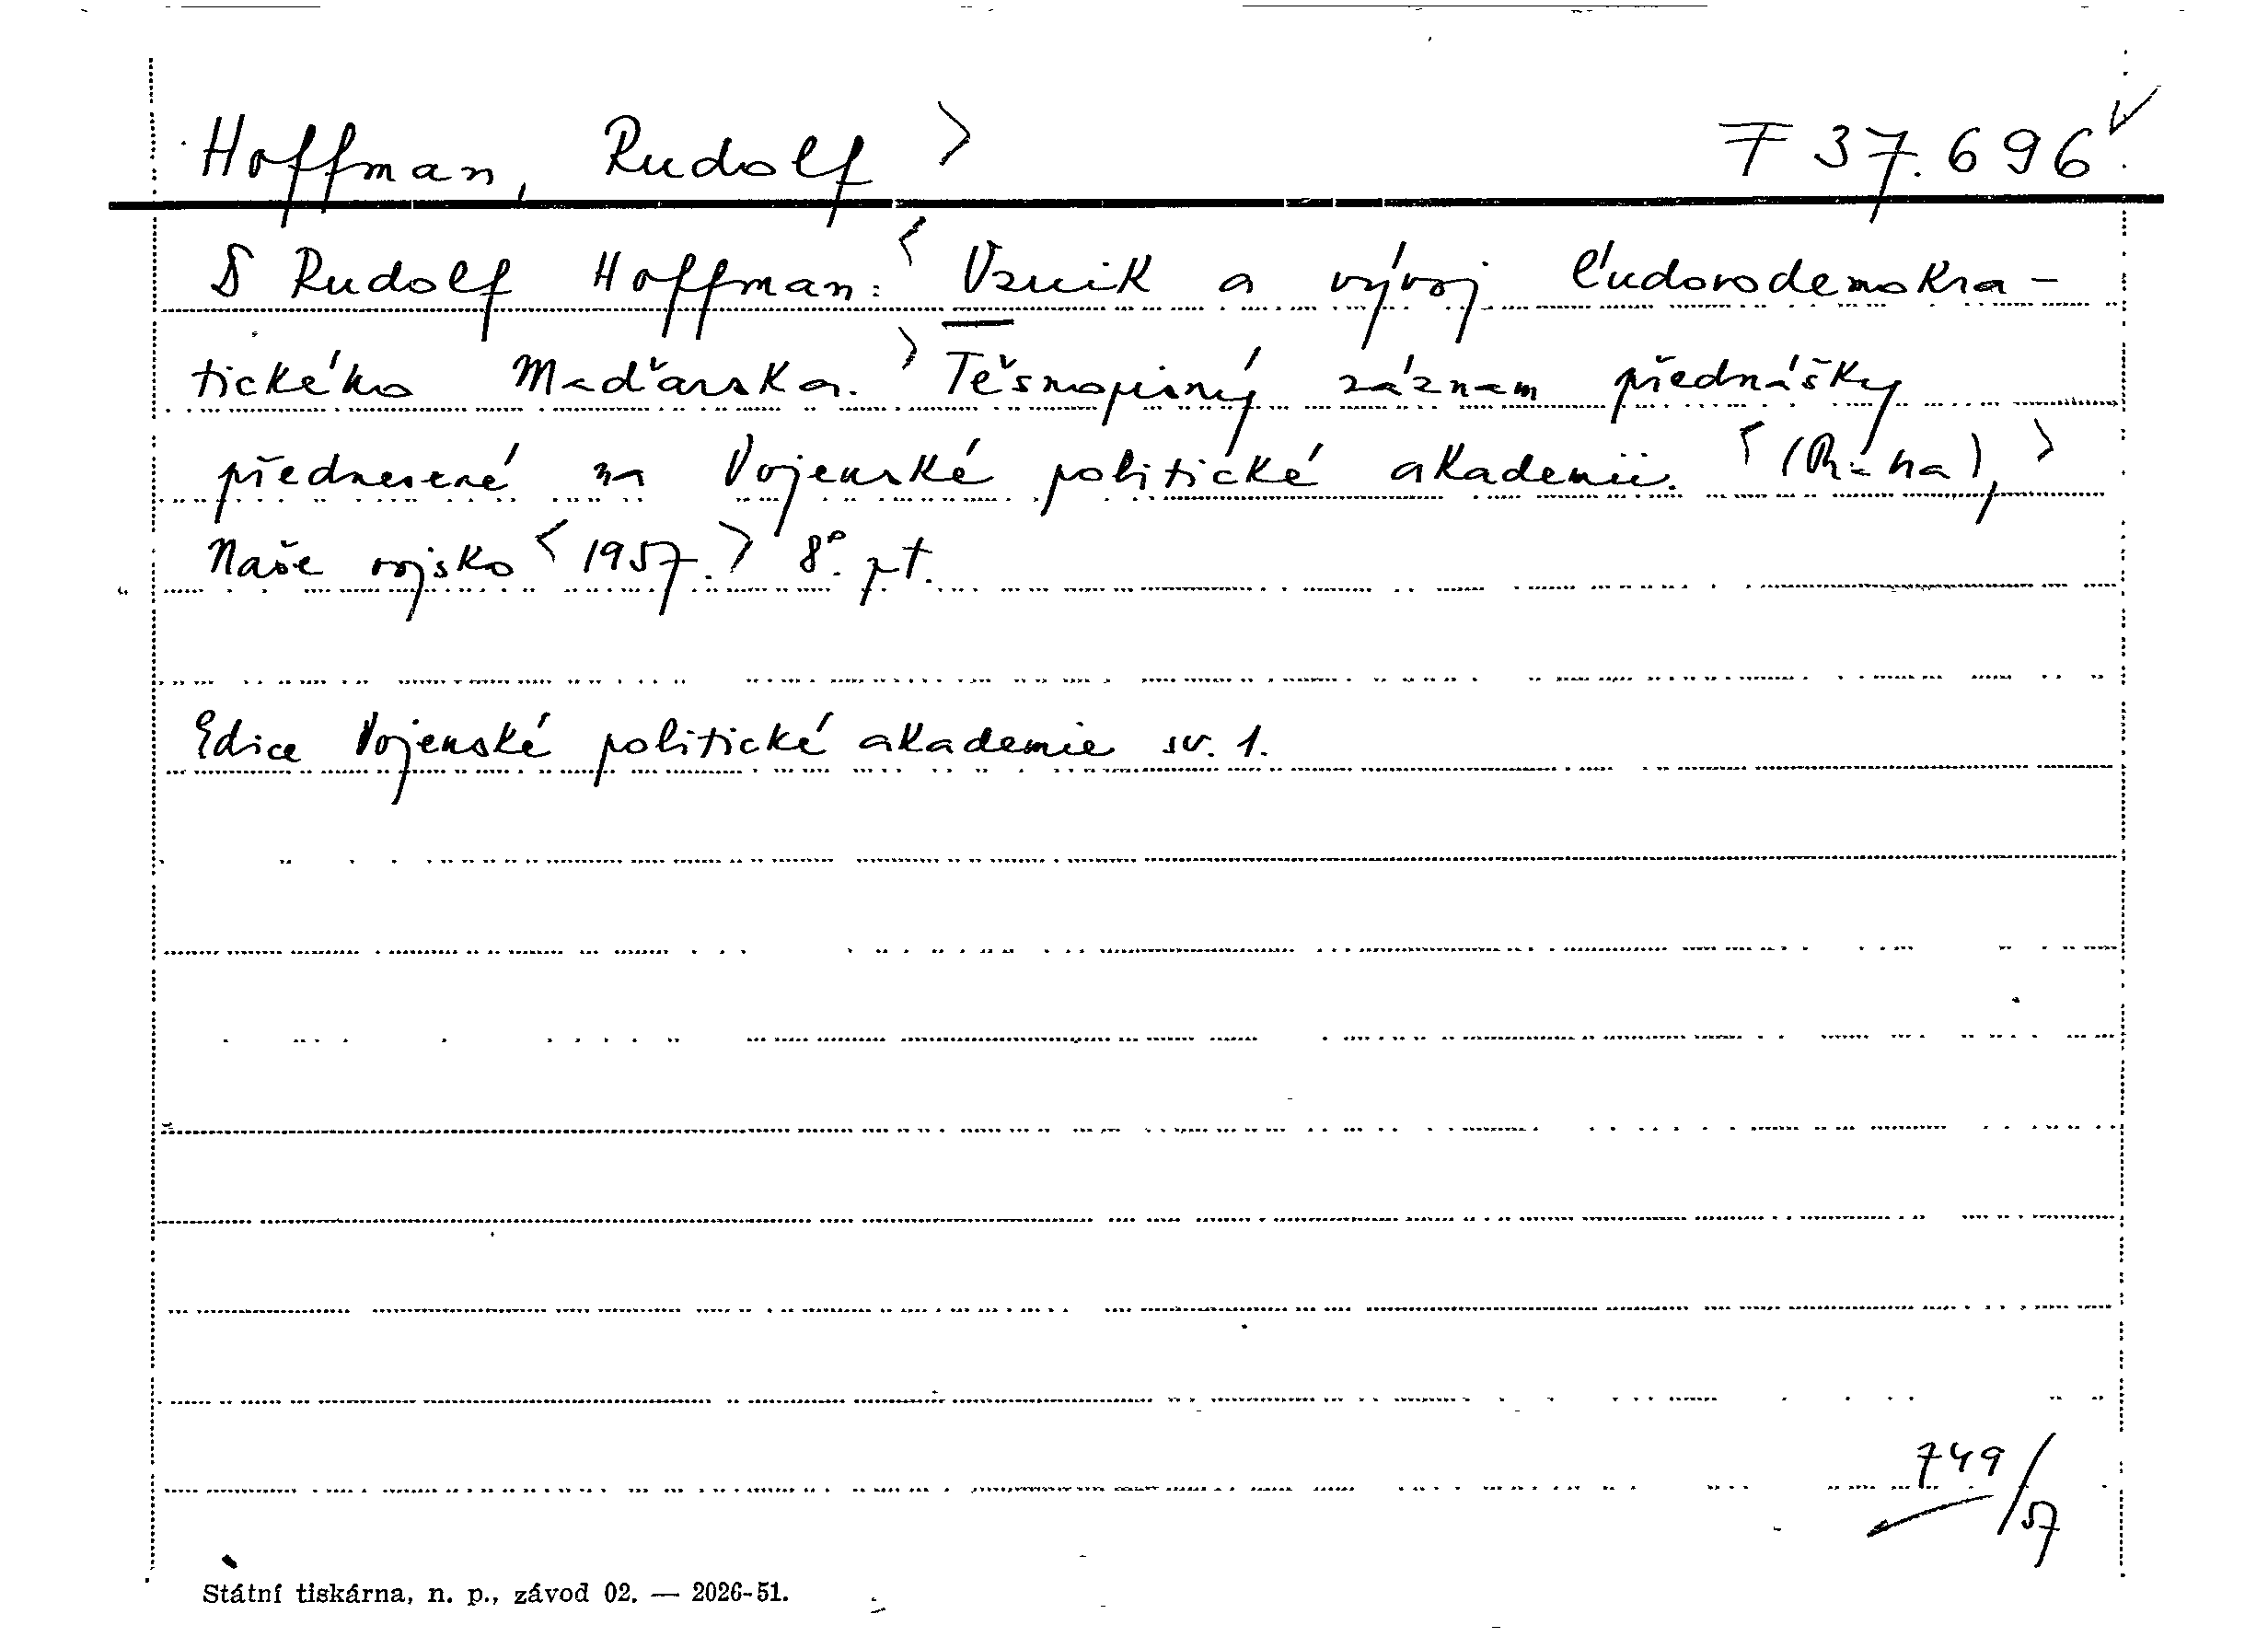 Hoffman, Rudolf > F 37.696
§ Rudolf Hoffman: < Vznik a vývoj ľudovodemokra-
tického Maďarska. > Těsnopisný záznam přednášky
přednesené na Vojenské politické akademii. < (Praha), >
Naše vojsko < 1957. > 8°. pt.
Edice Vojenské politické akademie sv. 1.
749/57
Státní tiskárna, n. p., závod 02. — 2026-51.